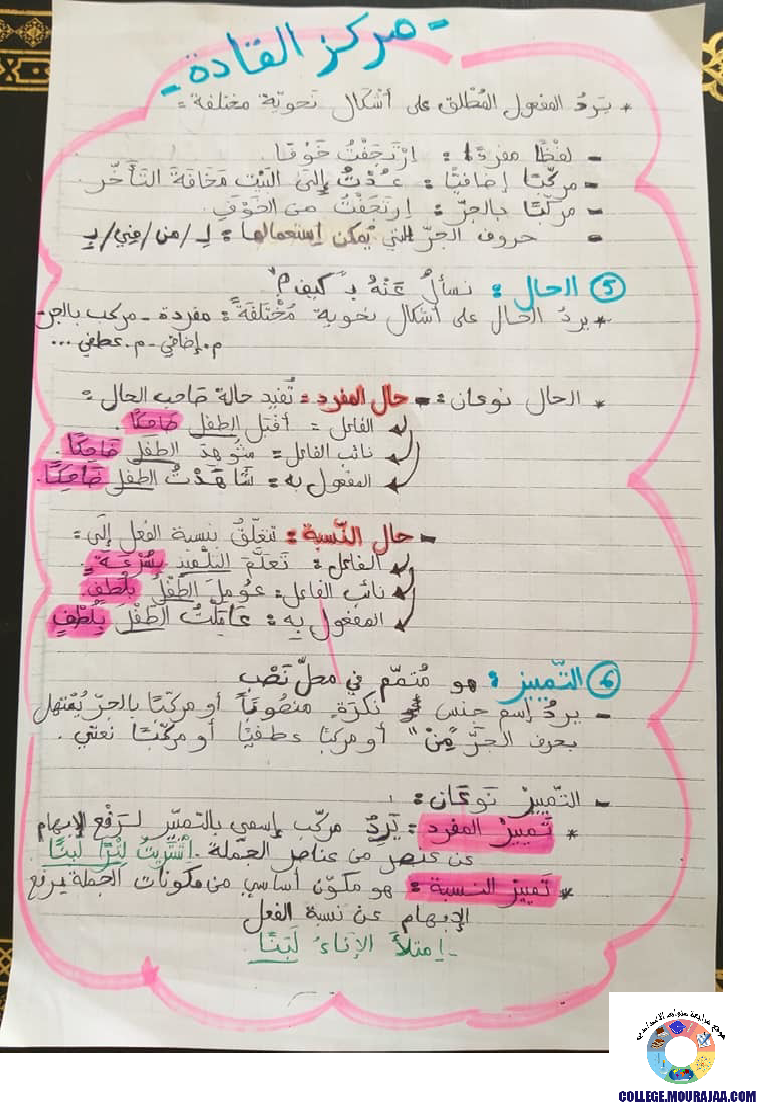 - مركز القادة -
* يَرِدُ المفعول المُطْلق على أشكال نَحويّة مختلفة:
- لفظًا مفردًا: اِرْتَجَفْتُ خَوْفًا.
- مركّبًا إضافيًّا: عُدْتُ إلَى البَيْتِ مَخَافَةَ التَأَخُّرِ.
- مركّبًا بالجرّ: اِرتَجَفْتُ من الخَوْفِ.
- حروف الجرّ التي يُمكن إستعمالها: لِـ/من/فِي/بِـ
⑤ الحال: نسألُ عَنْهُ بـ "كيف؟"
* يردُ الحال على أشكال نحوية مُخْتَلفَةً: مفردة - مركب بالجرّ
م.إضافي - م.عطفي ...
* الحال نوعان: - حال المفرد: تُفيد حالة صَاحب الحال:
الفاعل: أقبَلَ الطفلُ ضَاحِكًا.
نائب الفاعل: شُوهِدَ الطِفَلُ ضَاحِكًا.
المفعول به: شَاهَدْتُ الطفلَ ضَاحِكًا.
- حال النّسبة: تتعلّقُ بنسبة الفعل إلَى:
الفاعل: تَعَلَّمَ التلْمِيذُ بِسُرْعَةٍ.
نائب الفاعل: عُومِلَ الطِّفْلُ بِلُطفٍ
المفعول بِه: عَامَلْتُ الطِفْلَ بِلُطْفٍ
⑥ التّمييز: هو مُتمّم في محلّ نَصْبٍ
- يردُ إسم جنس نكرَةٍ منصُوبًا أو مركبًا بالجرّ يُسْتهل
بحرف الجرّ "مِنْ" أو مركبًا عطفيًّا أو مركّبًا نعتي.
- التّمييزُ نَوعَان:
* تمييزُ المفرد: يَرِدُ مركّب إسمي بالتمييز لـتَرفْع الإبهام
عن عنصر من عناصر الجملة. اِشْتَريتُ لِتْرًا لَبنًا
* تَمييز النسبة: هو مكوّن أساسي من مكونات الجملة يرفع
الإبهام عن نسبة الفعل
- اِمتلأَ الإنَاءُ لَبَنًا.
موقع مراجعة متوفر الاعدادي
COLLEGE.MOURAJAA.COM